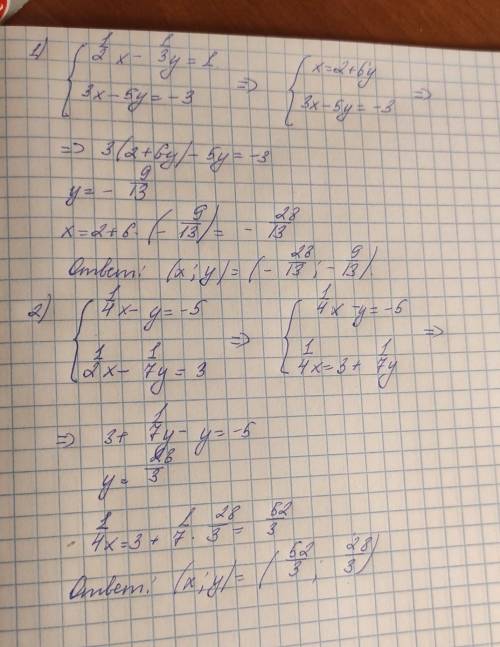 1) { 1/2 x - 1/3 y = 1 => { x = 2 + 6y =>
3x - 5y = -3 3x - 5y = -3
=> 3(2 + 6y) - 5y = -3
y = - 9/13
x = 2 + 6 · (- 9/13) = - 28/13
Ответ: (x; y) = (- 28/13; - 9/13)
2) { 1/4 x - y = -5 => { 1/4 x - y = -5 =>
1/2 x - 1/7 y = 3 1/4 x = 3 + 1/7 y
=> 3 + 1/7 y - y = -5
y = 28/3
1/4 x = 3 + 1/7 · 28/3 = 52/3
Ответ: (x; y) = (52/3; 28/3)